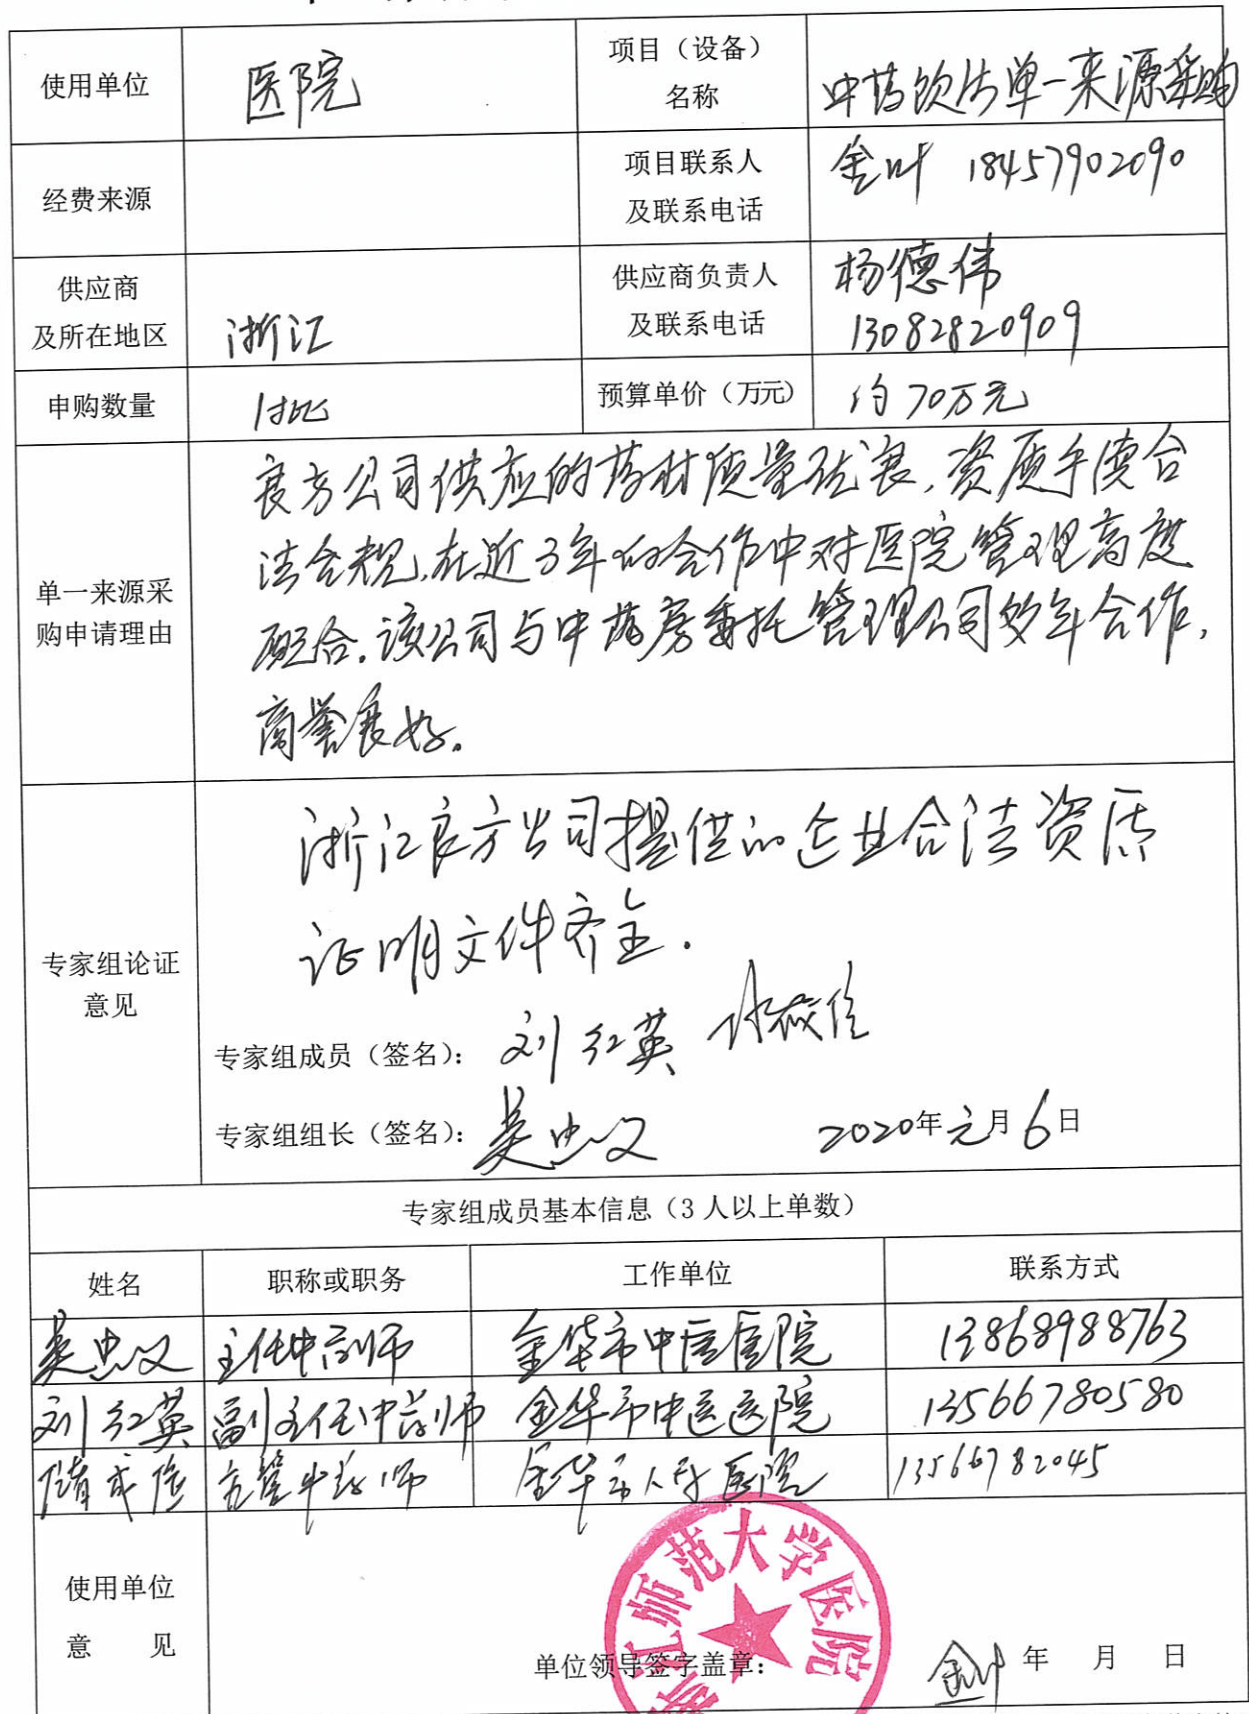 使用单位
医院
项目（设备）
名称
中药饮片单一来源采购
经费来源
项目联系人
及联系电话
金叶 18457902090
供应商
及所在地区
浙江
供应商负责人
及联系电话
杨德伟
13082820909
申购数量
1批
预算单价（万元）
约70万元
单一来源采
购申请理由
良方公司供应的药材质量优良，资质手续合
法合规，在近3年的合作中对医院管理高度
配合。该公司与中药房委托管理公司多年合作，
商誉良好。
专家组论证
意见
浙江良方公司提供的企业合法资质
证明文件齐全.
专家组成员（签名）： 刘红英
专家组组长（签名）： 吴忠义 2020年元月6日
专家组成员基本信息（3人以上单数）
姓名 职称或职务 工作单位 联系方式
吴忠义 主任中药师 金华市中医医院 13868988763
刘红英 副主任中药师 金华市中医医院 13566780580
主管中药师 金华市人民医院 13566782045
使用单位
意 见
浙江师范大学医院
单位领导签字盖章：
金叶 年 月 日